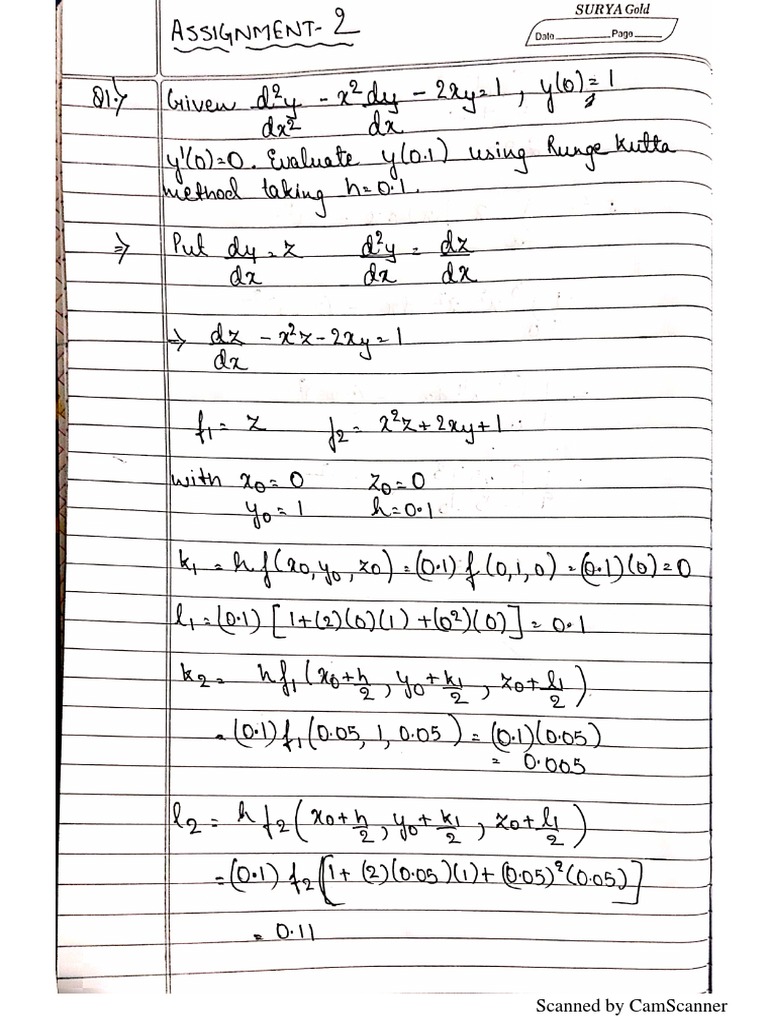 SURYA Gold
ASSIGNMENT-2
Date Page
Q1.> Given d²y/dx² - x² dy/dx - 2xy=1, y(0)=1
y'(0)=0. Evaluate y(0.1) using Runge Kutta
method taking h=0.1.
=> Put dy/dx = z d²y/dx = dz/dx
=> dz/dx - x²z - 2xy = 1
f₁ = z f₂ = x²z + 2xy + 1
with x₀ = 0 z₀ = 0
y₀ = 1 h = 0.1
k₁ = hf(x₀, y₀, z₀) = (0.1) f(0,1,0) = (0.1)(0) = 0
l₁ = (0.1) [1+(2)(0)(1) + (0²)(0)] = 0.1
k₂ = hf₁(x₀+h/2, y₀+k₁/2, z₀+l₁/2)
= (0.1) f₁(0.05, 1, 0.05) = (0.1)(0.05)
= 0.005
l₂ = hf₂(x₀+h/2, y₀+k₁/2, z₀+l₁/2)
= (0.1) f₂[1+(2)(0.05)(1)+(0.05)²(0.05)]
= 0.11
Scanned by CamScanner